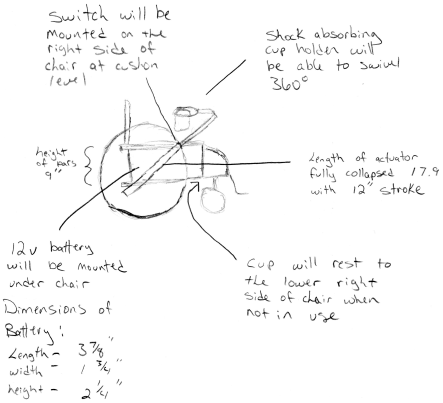 Switch will be
mounted on the
right side of
chair at cushon
level
Shock absorbing
cup holder will
be able to swivel
360°
height
of bars
9"
Length of actuator
fully collapsed 17.9
with 12" stroke
12v battery
will be mounted
under chair
Cup will rest to
the lower right
side of chair when
not in use
Dimensions of
Battery:
Length - 3 7/8"
width - 1 3/4"
height - 2 1/4"